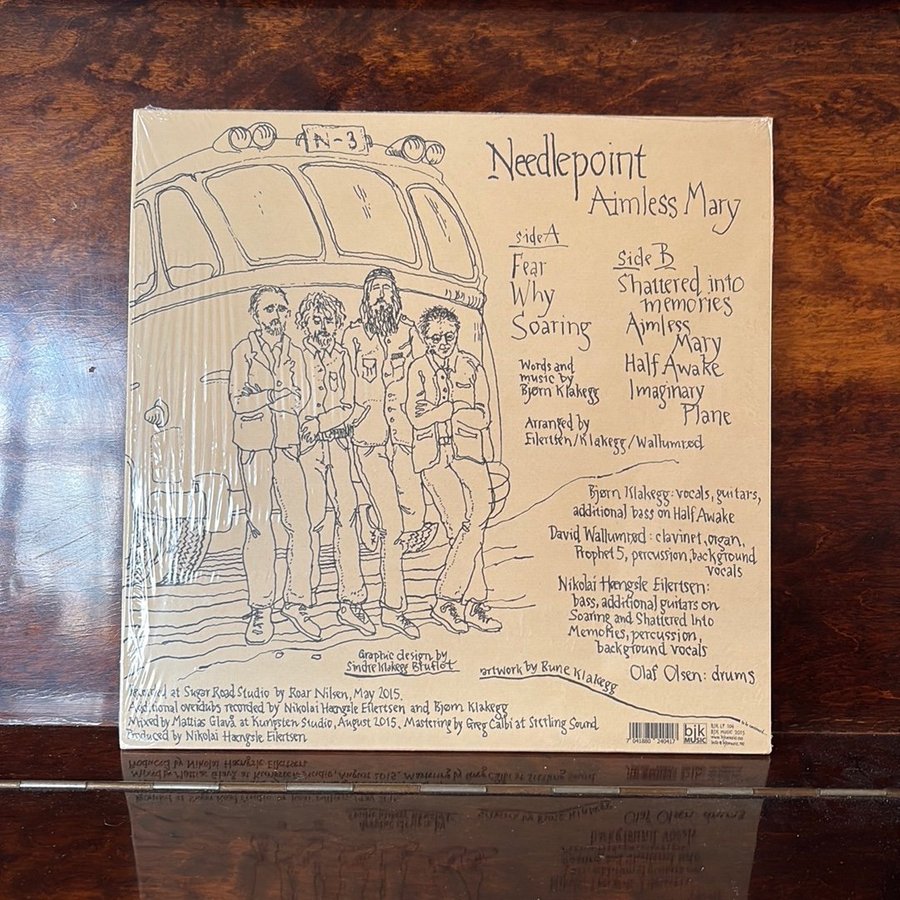 N-3
Needlepoint
Aimless Mary
side A
Fear
Why
Soaring
Words and
music by
Bjørn Klakegg
Arranged by
Eilertsen/Klakegg/Wallumrød
Side B
Shattered into
memories
Aimless
Mary
Half Awake
Imaginary
Plane
Bjørn Klakegg: vocals, guitars,
additional bass on Half Awake
David Wallumrød: clavinet, organ,
Prophet 5, percussion, background
vocals
Nikolai Hængsle Eilertsen:
bass, additional guitars on
Soaring and Shattered Into
Memories, percussion,
background vocals
Olaf Olsen: drums
Graphic design by
Sindre Klakegg Bruflot
artwork by Rune Klakegg
Recorded at Sugar Road Studio by Roar Nilsen, May 2015.
Additional overdubs recorded by Nikolai Hængsle Eilertsen and Bjørn Klakegg
Mixed by Mattias Glavå at Kungsten Studio, August 2015. Mastering by Greg Calbi at Sterling Sound
Produced by Nikolai Hængsle Eilertsen
7 041880 240417
bjk
MUSIC
BJK MUSIC 2015